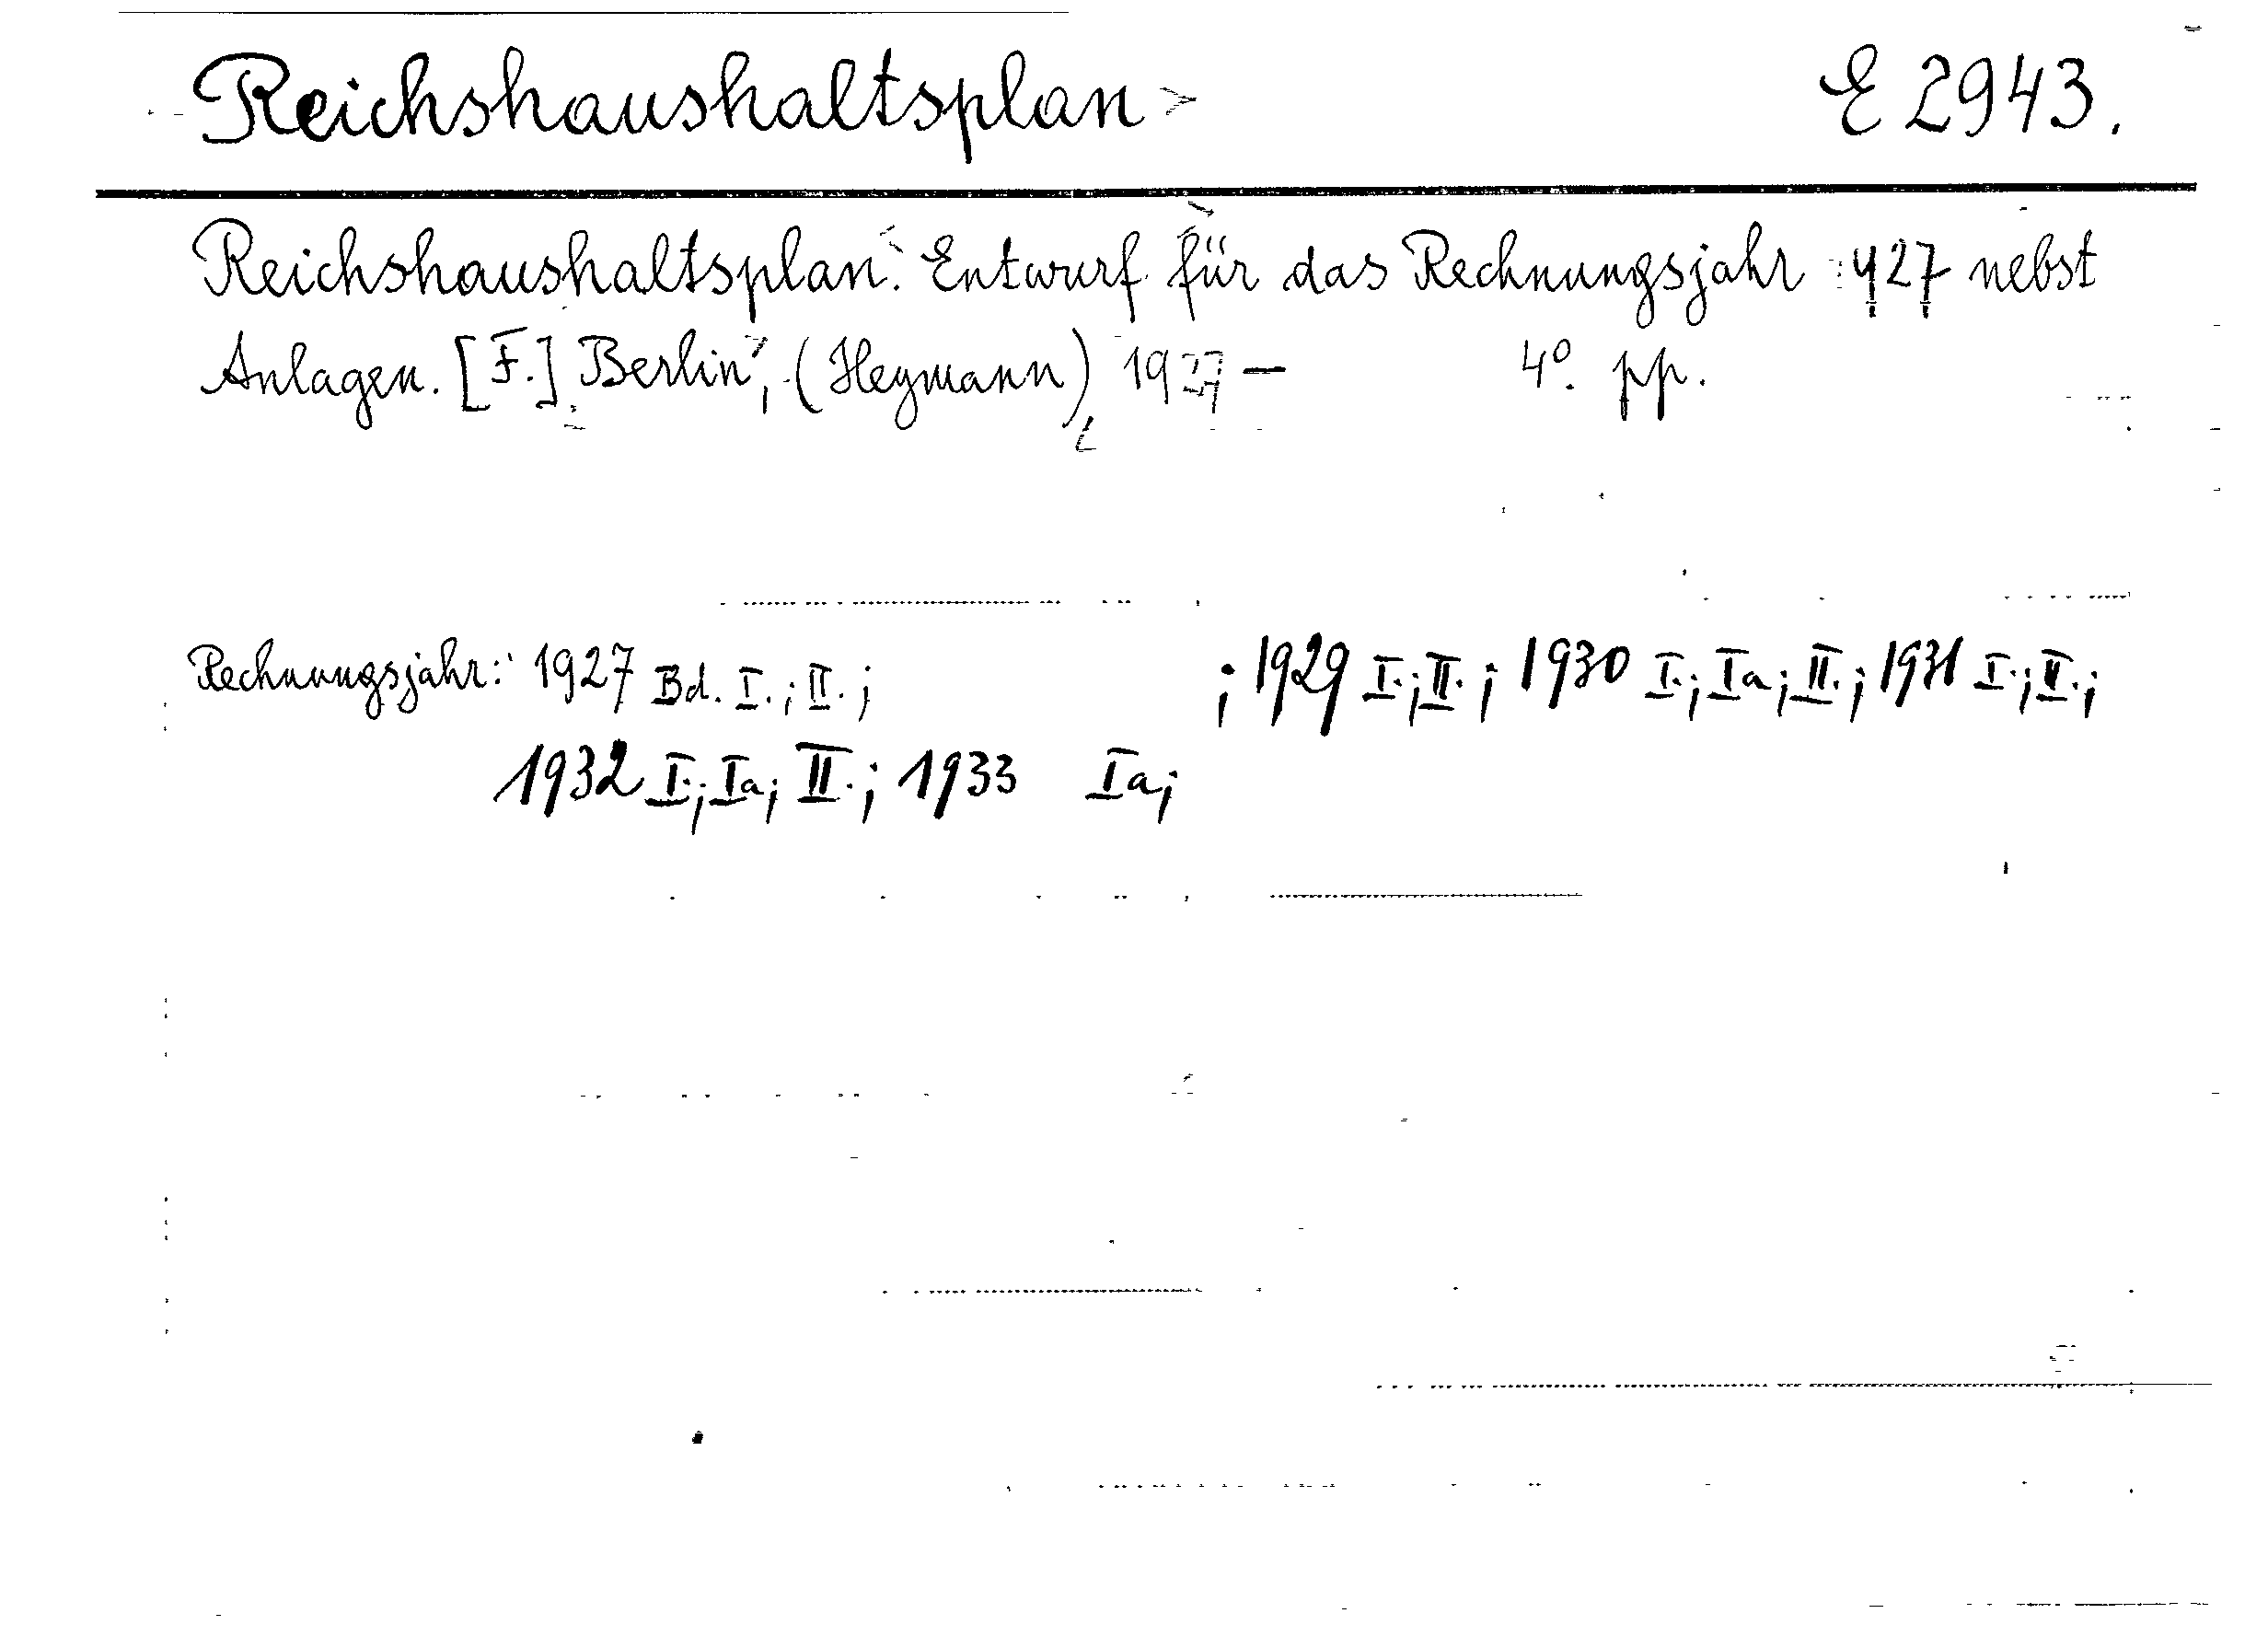 Reichshaushaltsplan E 2943.
Reichshaushaltsplan. Entwurf für das Rechnungsjahr 1927 nebst
Anlagen. [F.] Berlin, (Heymann) 1927 – 4º. pp.
Rechnungsjahr: 1927 Bd. I.; II.; ; 1929 I.; II.; 1930 I.; Ia; II.; 1931 I.; II.;
1932 I.; Ia; II.; 1933 Ia;